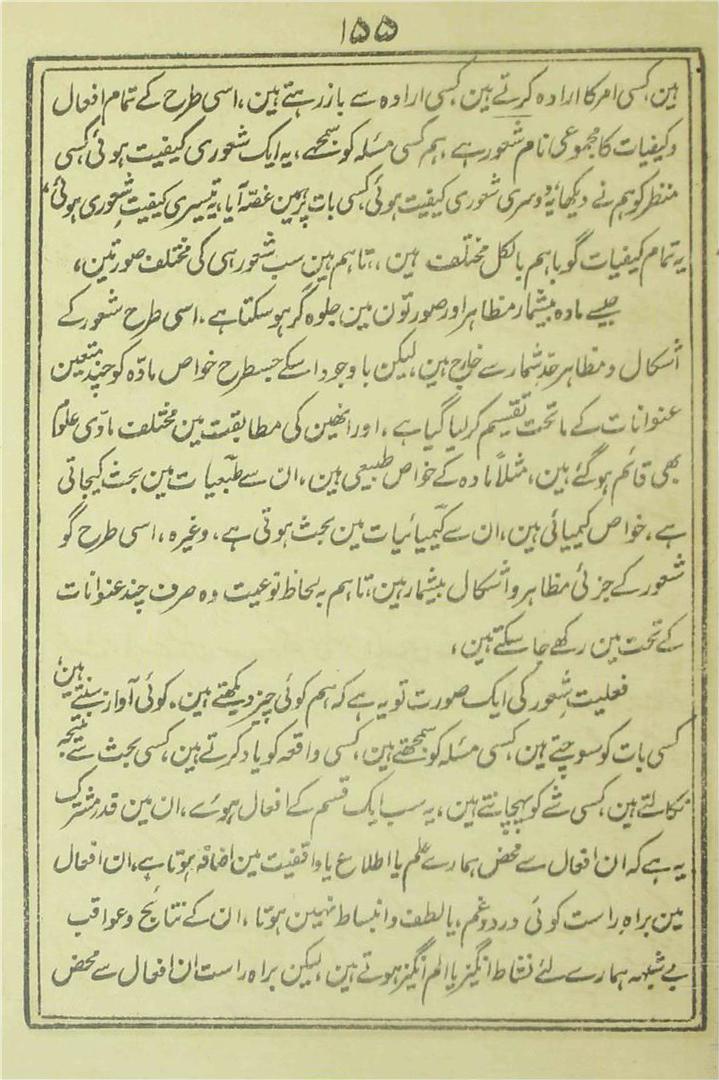 ۱۵۵
ہین، کسی امر کا ارادہ کرتے ہین، کسی ارادہ سے باز رہتے ہین، اسی طرح کے تمام افعال
وکیفیات کا مجموعی نام شعور ہے، ہم کسی مسئلہ کو سمجھے، یہ ایک شعوری کیفیت ہوئی، کسی
منظر کو ہم نے دیکھا، یہ دوسری شعوری کیفیت ہوئی، کسی بات پر ہمین غصہ آیا، تیسری کیفیتِ شعوری ہوئی،
یہ تمام کیفیات گو باہم بالکل مختلف ہین، تاہم ہین سب شعور ہی کی مختلف صورتین،
جیسے مادہ بیشمار مظاہر اور صورتون مین جلوہ گر ہو سکتا ہے، اسی طرح شعور کے
اشکال و مظاہر حدِّ شمار سے خارج ہین، لیکن باوجود اسکے جسطرح خواص مادّہ کو چند متعین
عنوانات کے ماتحت تقسیم کر لیا گیا ہے، اور انھین کی مطابقت مین مختلف مادّی علوم
بھی قائم ہو گئے ہین، مثلاً مادہ کے خواص طبیعی ہین، ان سے طبّعیات مین بحث کیجاتی
ہے، خواص کیمیائی ہین، ان سے کیمیائیات مین بحث ہوتی ہے، وغیرہ، اسی طرح گو
شعور کے جزئی مظاہر و اشکال بیشمار ہین، تاہم بہ لحاظ نوعیت وہ صرف چند عنوانات
کے تحت مین رکھے جا سکتے ہین،
فعلیتِ شعور کی ایک صورت تو یہ ہے کہ ہم کوئی چیز دیکھتے ہین، کوئی آواز سنتے ہین،
کسی بات کو سوچتے ہین، کسی مسئلہ کو سمجھتے ہین، کسی واقعہ کو یاد کرتے ہین، کسی بحث سے نتیجہ
نکالتے ہین، کسی شے کو پہچانتے ہین، یہ سب ایک قسم کے افعال ہوئے، ان مین قدر مشترک
یہ ہے کہ ان افعال سے محض ہمارے علم یا اطلاع یا واقفیت مین اضافہ ہوتا ہے، ان افعال
مین براہِ راست کوئی درد و غم، یا لطف و انبساط نہین ہوتا، ان کے نتائج و عواقب
بے شبہہ ہمارے لئے نشاط انگیز یا الم انگیز ہوتے ہین، لیکن براہ راست ان افعال سے محض